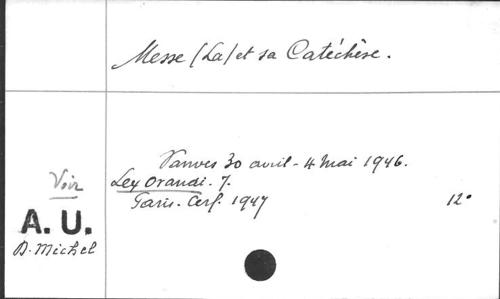 Messe (La) et sa Catéchèse.
Vanves 30 avril - 4 Mai 1946.
Lex Orandi. 7.
Paris. Cerf. 1947 12°
Voir
A. U.
D. Michel